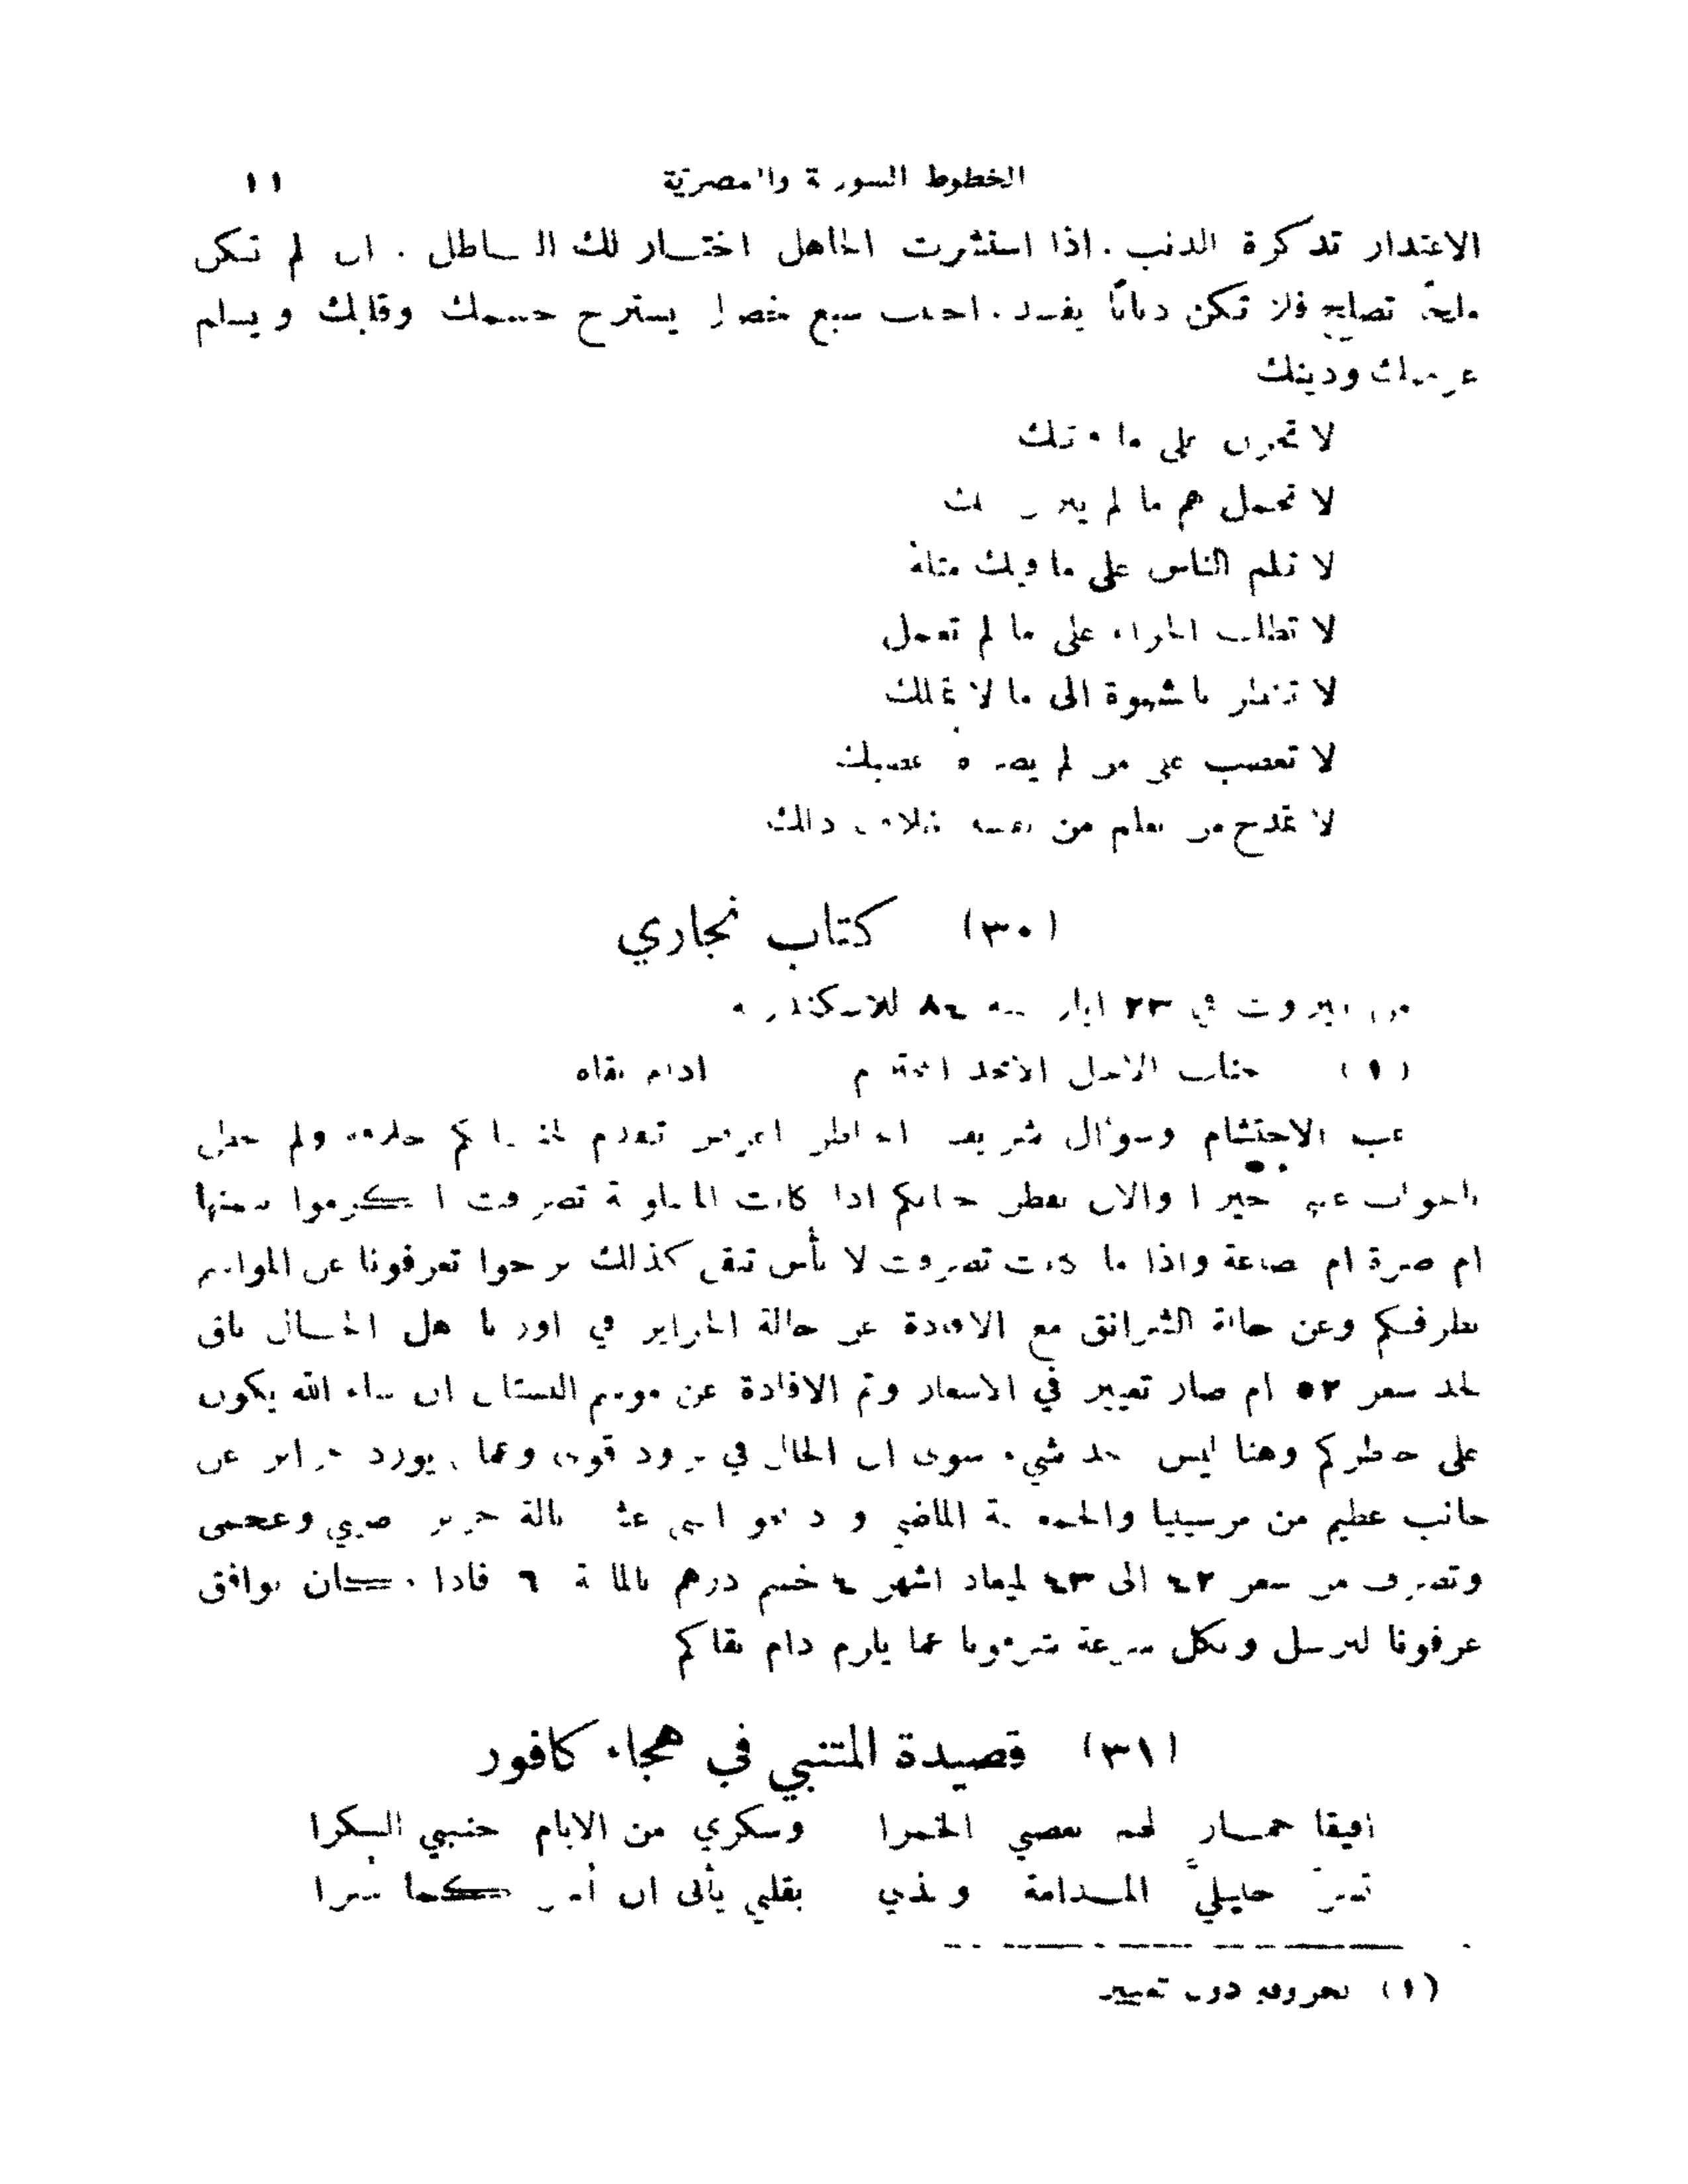 الخطوط السورية والمصريّة ١١
الاعتذار تذكرة الذنب. اذا استشرت الجاهل اختــار لك البــاطل. ان لم تكن
ملحًا تصلح فلا تكن ذبابًا يفسد. اجتنب سبع خصال يسترح جسمك وقلبك ويسلم
عرضك ودينك
لا تحزن على ما فاتك
لا تحمل هم ما لم ينزل بك
لا تلم الناس على ما فيك مثله
لا تطلب الجزاء على ما لم تعمل
لا تنظر بالشهوة الى ما لا تملك
لا تغضب على من لم يضره غضبك
لا تمدح من يعلم من نفسه خلاف ذلك
(٣٠) كتاب تجاري
من بيروت في ٢٣ ايار سنه ٨٤ للاسكندرية
(١) جناب الاجل الامجد المحترم ادام بقاه
غب الاحتشام وسؤال شريف الخاطر اعرض تقدم لجنابكم خلافه ولم حظي
باجواب عنه خيرا والان بفطر جنابكم اذا كانت تصرفت اكرموا بثمنها
ام صرة ام بضاعة واذا ما كانت تصرفت لا بأس تبقى كذلك ترجوا تعرفونا عن المواسم
بطرفكم وعن حالة الشرانق مع الافادة عن حالة الحراير في اوربا هل الحــال باق
لحد سعر ٥٢ ام صار تغيير في الاسعار وتم الافادة عن موسم البستان ان شاء الله يكون
على خاطركم وهنا ليس جد شيء سوى ان الحال في برود قوي وعمال يورد حراير عن
جانب عظيم من مرسيليا والجمعة الماضي ورد نحو اثني عشر بالة حرير صيني وعجمي
وتصرف من سعر ٤٢ الى ٤٣ لميعاد اشهر ٤ خسم درهم بالماية ٦ فاذا كان يوافق
عرفونا لنرسل وبكل سرعة شرفونا عما يلزم دام بقاكم
(٣١) قصيدة المتنبي في هجاء كافور
افيقا خمــار الهم بغضني الخمرا وسكري من الايام جنبني السكرا
تسر خليليَّ المــدامة والذي بقلبي يأبى ان أسر كما سرا
(١) بحروفه دون تغيير